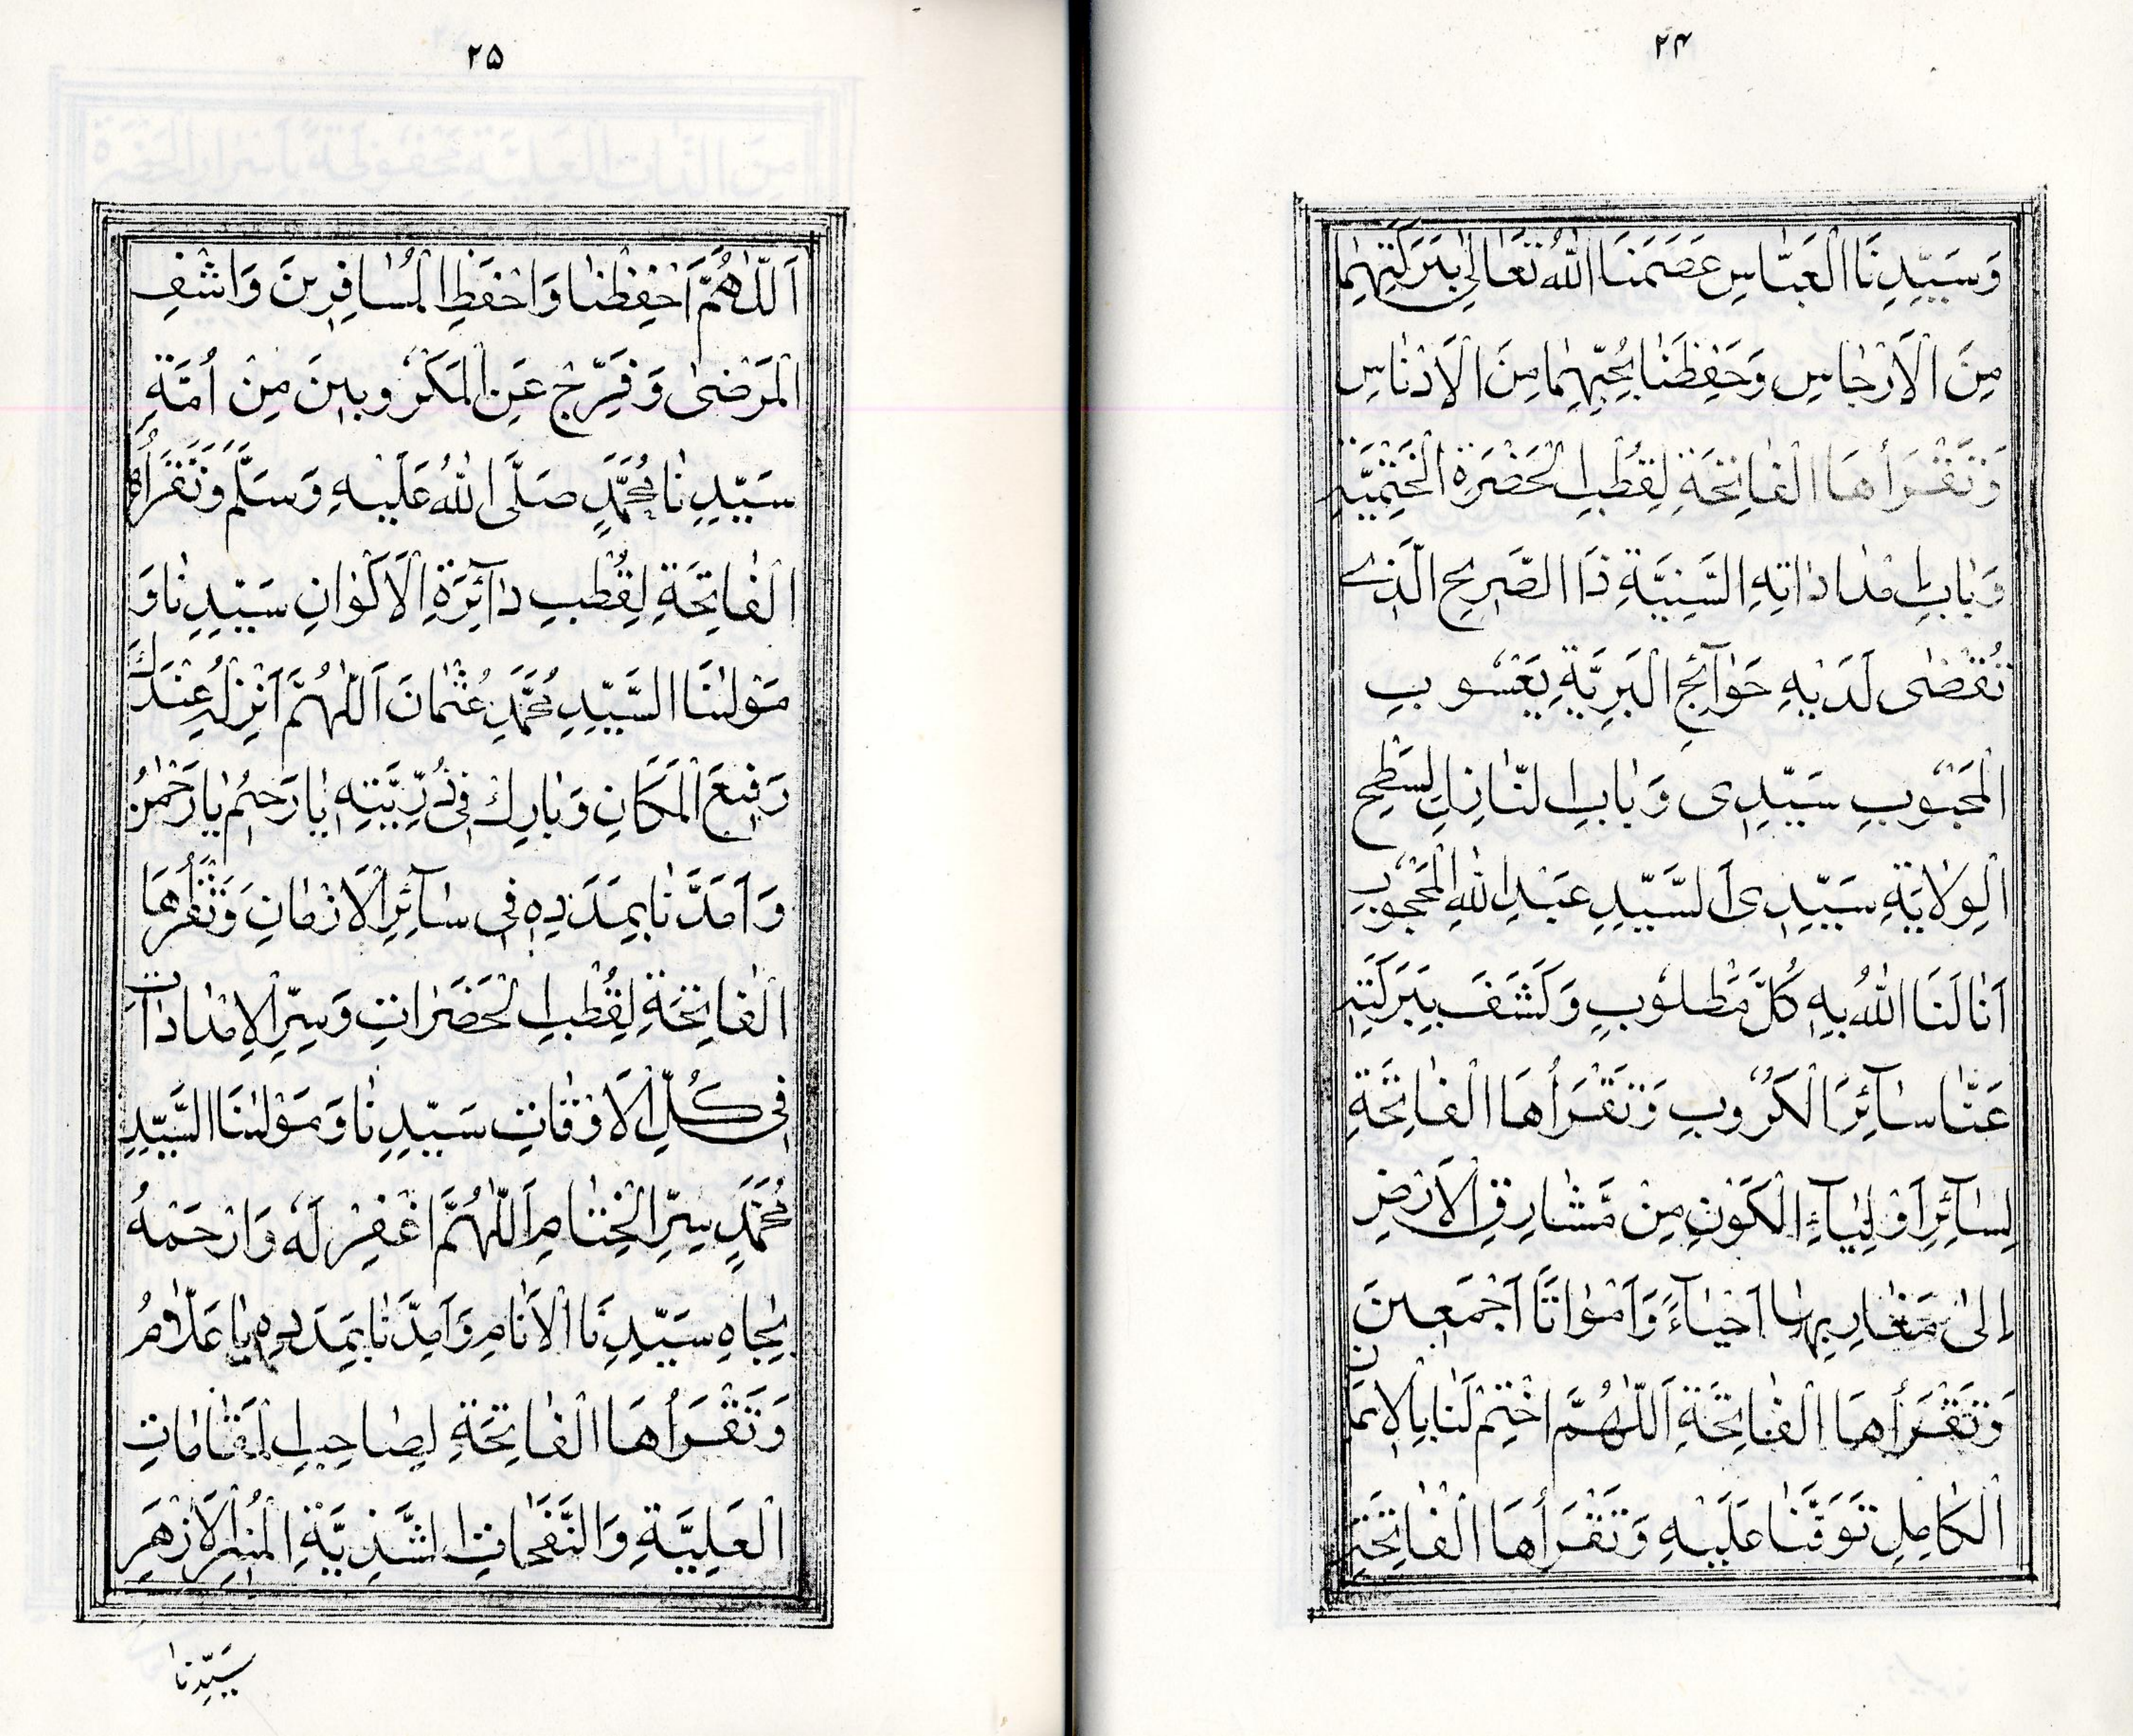 ۲۴
وَسَيِّدِنَا الْعَبَّاسِ عَصَمَنَا اللّٰهُ تَعَالٰى بِبَرَكَتِهِمَا
مِنَ الْاَرْجَاسِ وَحَفِظَنَا بِحُبِّهِمَا مِنَ الْاَدْنَاسِ
وَتَقْرَأُهَا الْفَاتِحَةِ لِقُطْبِ الْحَضْرَةِ الْخَتْمِيَّةِ
وَبَابِ مْدَادَاتِهِ السَّنِيَّةِ ذَا الضَّرِيحِ الَّذِى
تُقْضٰى لَدَيْهِ حَوَآئِجُ الْبَرِيَّةِ يَعْسُوبِ
الْمَحْبُوبِ سَيِّدِى وَبَابِ التَّنَازُلِ لِسَطْحِ
الْوِلَايَةِ سَيِّدِى اَلسَّيِّدِ عَبْدِ اللّٰهِ الْمَحْجُوبِ
اَنَالَنَا اللّٰهُ بِهِ كُلَّ مَطْلُوبٍ وَكَشَفَ بِبَرَكَتِهِ
عَنَّا سَآئِرَ الْكُرُوبِ وَتَقْرَأُهَا الْفَاتِحَةِ
لِسَآئِرِ اَوْلِيَآءِ الْكَوْنِ مِنْ مَشَارِقِ الْاَرْضِ
اِلٰى مَغَارِبِهَا اَحْيَآءً وَاَمْوَاتًا اَجْمَعِينَ
وَتَقْرَأُهَا الْفَاتِحَةِ اَللّٰهُمَّ اخْتِمْ لَنَا بِالْاِيمَانِ
الْكَامِلِ تَوَفَّنَا عَلَيْهِ وَتَقْرَأُهَا الْفَاتِحَةِ
۲۵
اَللّٰهُمَّ احْفِظْنَا وَاحْفَظِ الْمُسَافِرِينَ وَاشْفِ
الْمَرْضٰى وَفَرِّجْ عَنِ الْمَكْرُوبِينَ مِنْ اُمَّةِ
سَيِّدِنَا مُحَمَّدٍ صَلَّى اللّٰهُ عَلَيْهِ وَسَلَّمَ وَتَقْرَأُهَا
الْفَاتِحَةِ لِقُطْبِ دَآئِرَةِ الْاَكْوَانِ سَيِّدِنَا وَ
مَوْلٰنَا السَّيِّدِ مُحَمَّدِ عُثْمَانَ اَللّٰهُمَّ اَنْزِلْهُ عِنْدَكَ
رَفِيعَ الْمَكَانِ وَبَارِكْ فِى ذُرِّيَّتِهِ يَا رَحِيمُ يَا رَحْمٰنُ
وَاَمَدَّنَا بِمَدَدِهِ فِى سَآئِرِ الْاَزْمَانِ وَتَقْرَأُهَا
الْفَاتِحَةِ لِقُطْبِ الْحَضَرَاتِ وَسِرِّ الْاِمْدَادَاتِ
فِى كُلِّ الْاَوْقَاتِ سَيِّدِنَا وَمَوْلٰنَا السَّيِّدِ
مُحَمَّدٍ سِرِّ الْخِتَامِ اَللّٰهُمَّ اغْفِرْ لَهُ وَارْحَمْهُ
بِجَاهِ سَيِّدِنَا الْاَنَامِ وَاَمِدَّنَا بِمَدَدِهِ يَا عَلَّامُ
وَتَقْرَأُهَا الْفَاتِحَةِ لِصَاحِبِ الْمَقَامَاتِ
الْعَلِيَّةِ وَالنَّفَحَاتِ الشَّذِيَّةِ الْمُنِيرِ الْاَزْهَرِ
سَيِّدِنَا